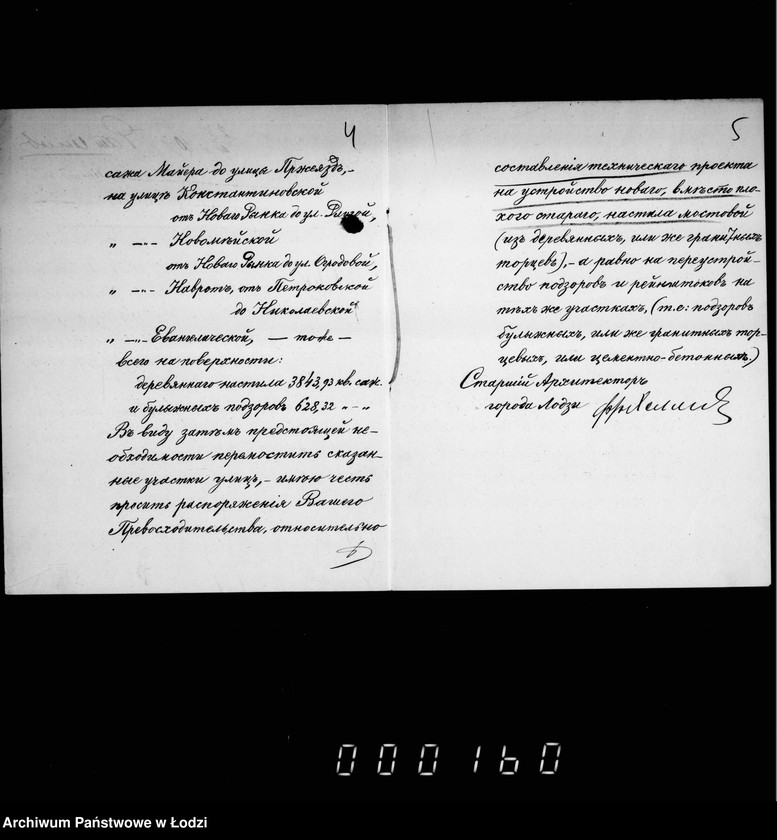 4
сажа Майера до улицы Пржеяздъ,-
на улицѣ Константиновской
отъ Новаго Рынка до ул. Длугой,
„ —„— Новомѣйской
отъ Новаго Рынка до ул. Огродовой,
„ —„— Навротъ, отъ Петроковской
до Николаевской
„ —„— Евангелической, — тоже —
всего на поверхности:
деревяннаго настила 3843,93 кв. саж.
и булыжныхъ подзоровъ 628,32 „ — „
Въ виду затѣмъ предстоящей не-
обходимости перемостить сказан-
ные участки улицъ,- имѣю честь
просить распоряженія Вашего
Превосходительства, относительно
5
составленія техническаго проекта
на устройство новаго, вмѣсто пло-
хого стараго, настила мостовой
(изъ деревянныхъ, или же гранитныхъ
торцевъ),- а равно на переустрой-
ство подзоровъ и рейнштоковъ на
тѣхъ же участкахъ, (т.е: подзоровъ
булыжныхъ, или же гранитныхъ тор-
цевыхъ, или цементно-бетонныхъ)
Старшій Архитекторъ
города Лодзи
000160
Archiwum Państwowe w Łodzi